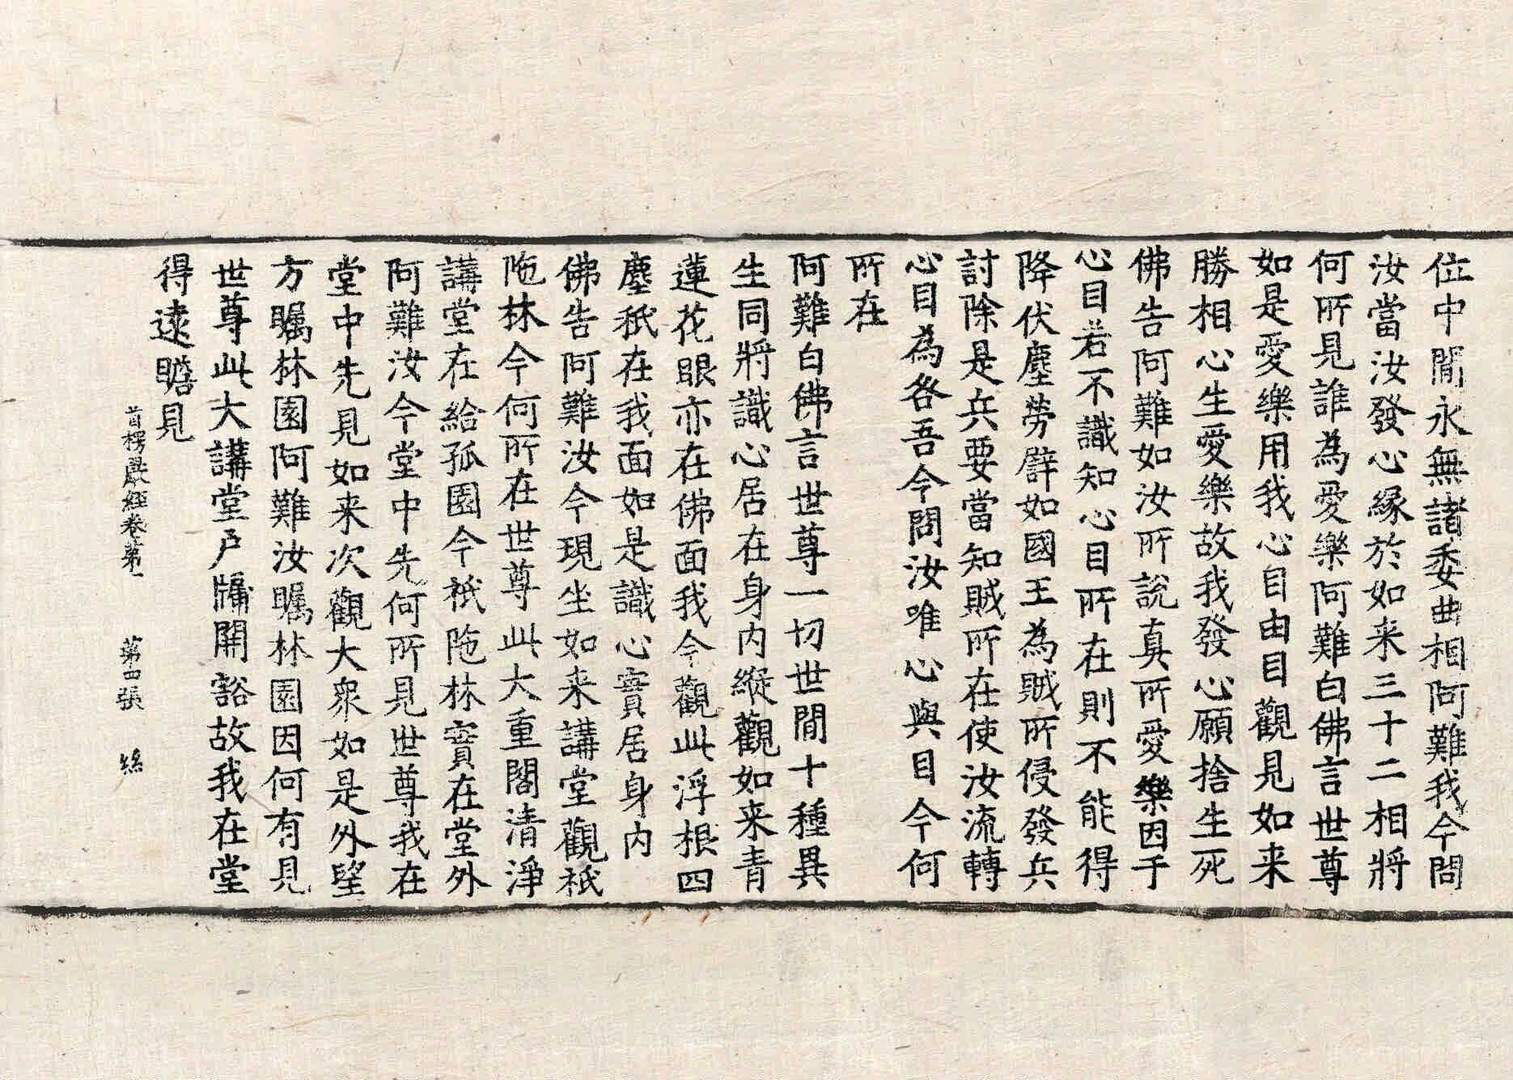 位中間永無諸委曲相阿難我今問
汝當汝發心緣於如来三十二相將
何所見誰為愛樂阿難白佛言世尊
如是愛樂用我心目由目觀見如来
勝相心生愛樂故我發心願捨生死
佛告阿難如汝所說真所愛樂因于
心目若不識知心目所在則不能得
降伏塵勞辟如國王為賊所侵發兵
討除是兵要當知賊所在使汝流轉
心目為咎吾今問汝唯心與目今何
所在
阿難白佛言世尊一切世間十種異
生同將識心居在身内縱觀如来青
蓮花眼亦在佛面我今觀此浮根四
塵秖在我面如是識心實居身内
佛告阿難汝今現坐如来講堂觀祇
陁林今何所在世尊此大重閣清淨
講堂在給孤園今祇陁林實在堂外
阿難汝今堂中先何所見世尊我在
堂中先見如来次觀大衆如是外望
方矚林園阿難汝矚林園因何有見
世尊此大講堂户牖開豁故我在堂
得遠瞻見
首楞嚴經卷第一 第四張 絲